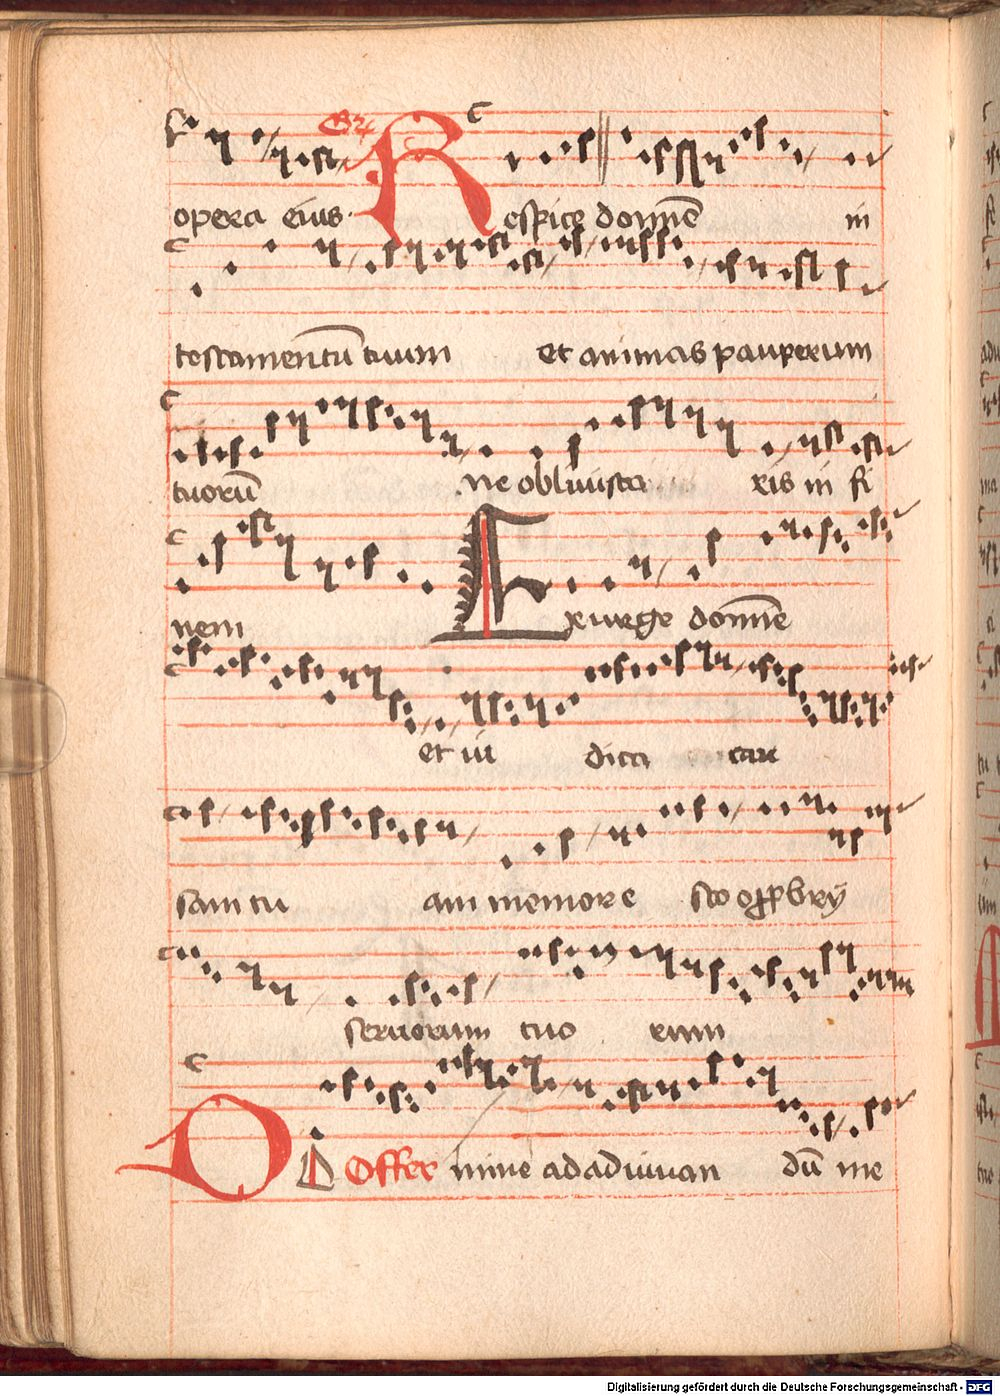 opera eius. Gr Respice domine in
testamentū tuum et animas pauperum
tuorū ne obliuisca ris in fi
nem Exurge domine
et iu dica cau
sam tu am memor e sto opprobry
seruorum tuo rum
Offer Domine ad adiuuan dū me
Digitalisierung gefördert durch die Deutsche Forschungsgemeinschaft - DFG